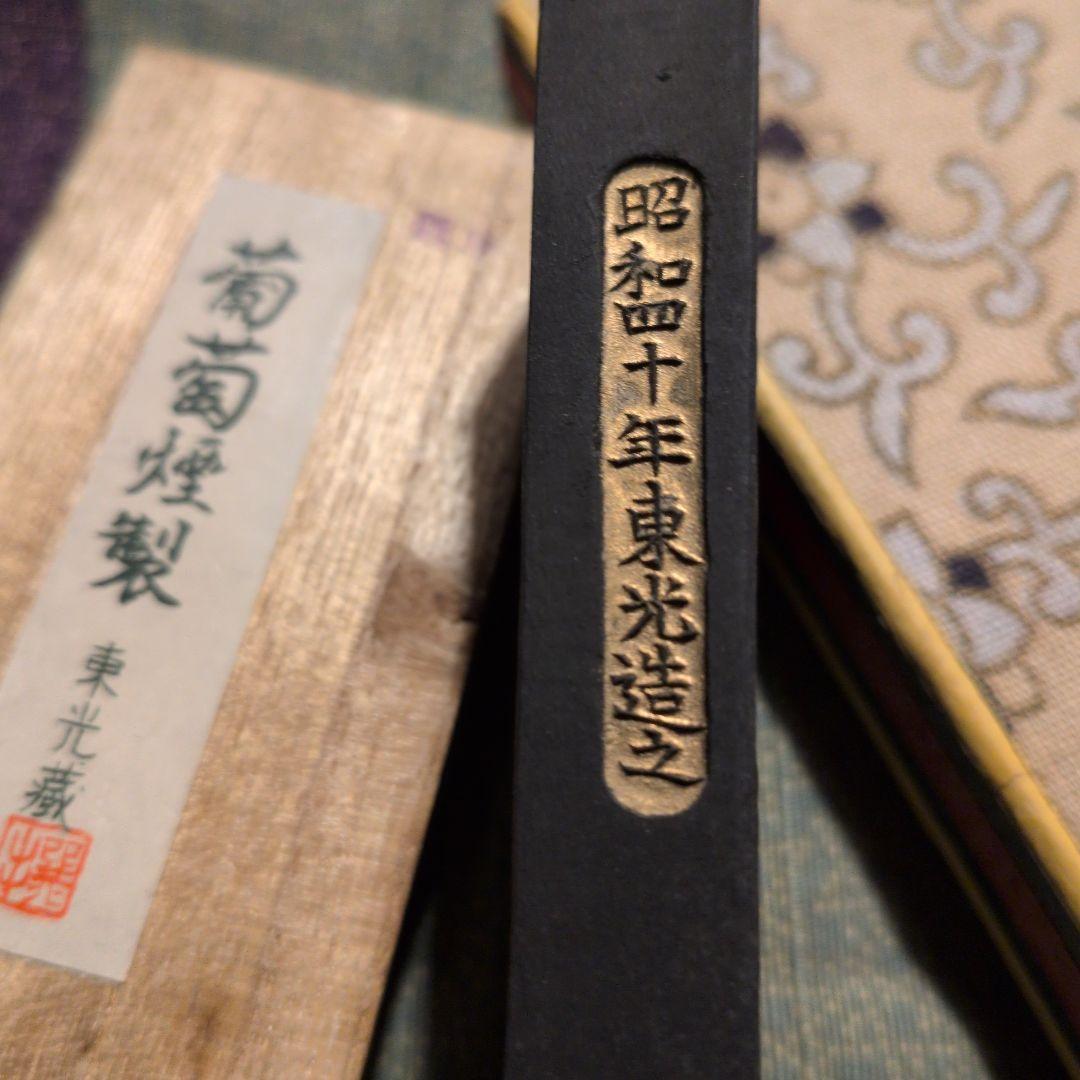 葡萄煙製
東光藏
昭和四十年東光造之